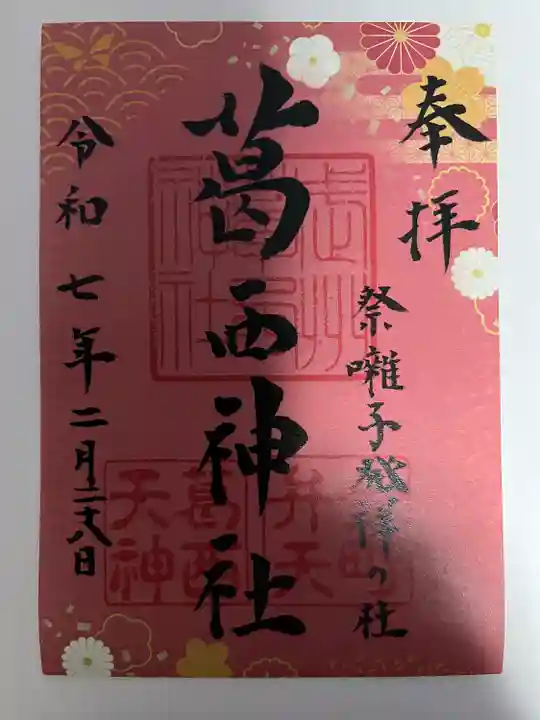 奉拝
祭囃子発祥の社
葛西神社
令和七年二月二十八日
葛西
天神